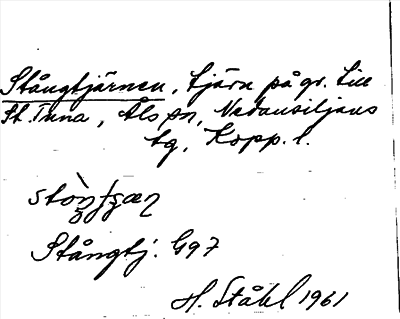 Stångtjärnen, tjärn på gr. till
St. Tuna, Åls sn, Nedansiljans
tg, Kopp. l.
Stångtj. G97
H. Ståhl 1961